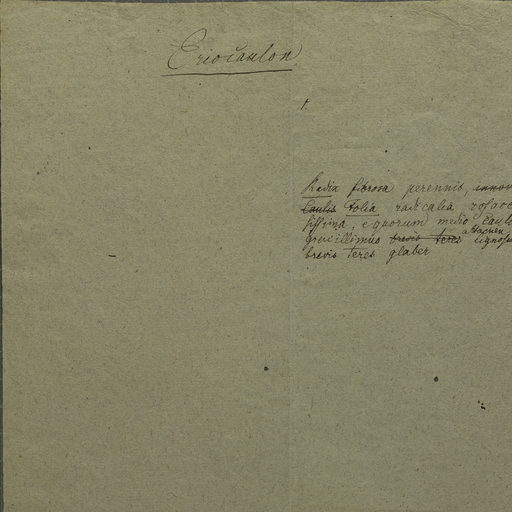 Eriocaulon
1.
Radix fibrosa perennis,
Caulis Folia radicalia
sissima, equorum medio cauli
gracillimus brevis teres lignosu
brevis teres glaber